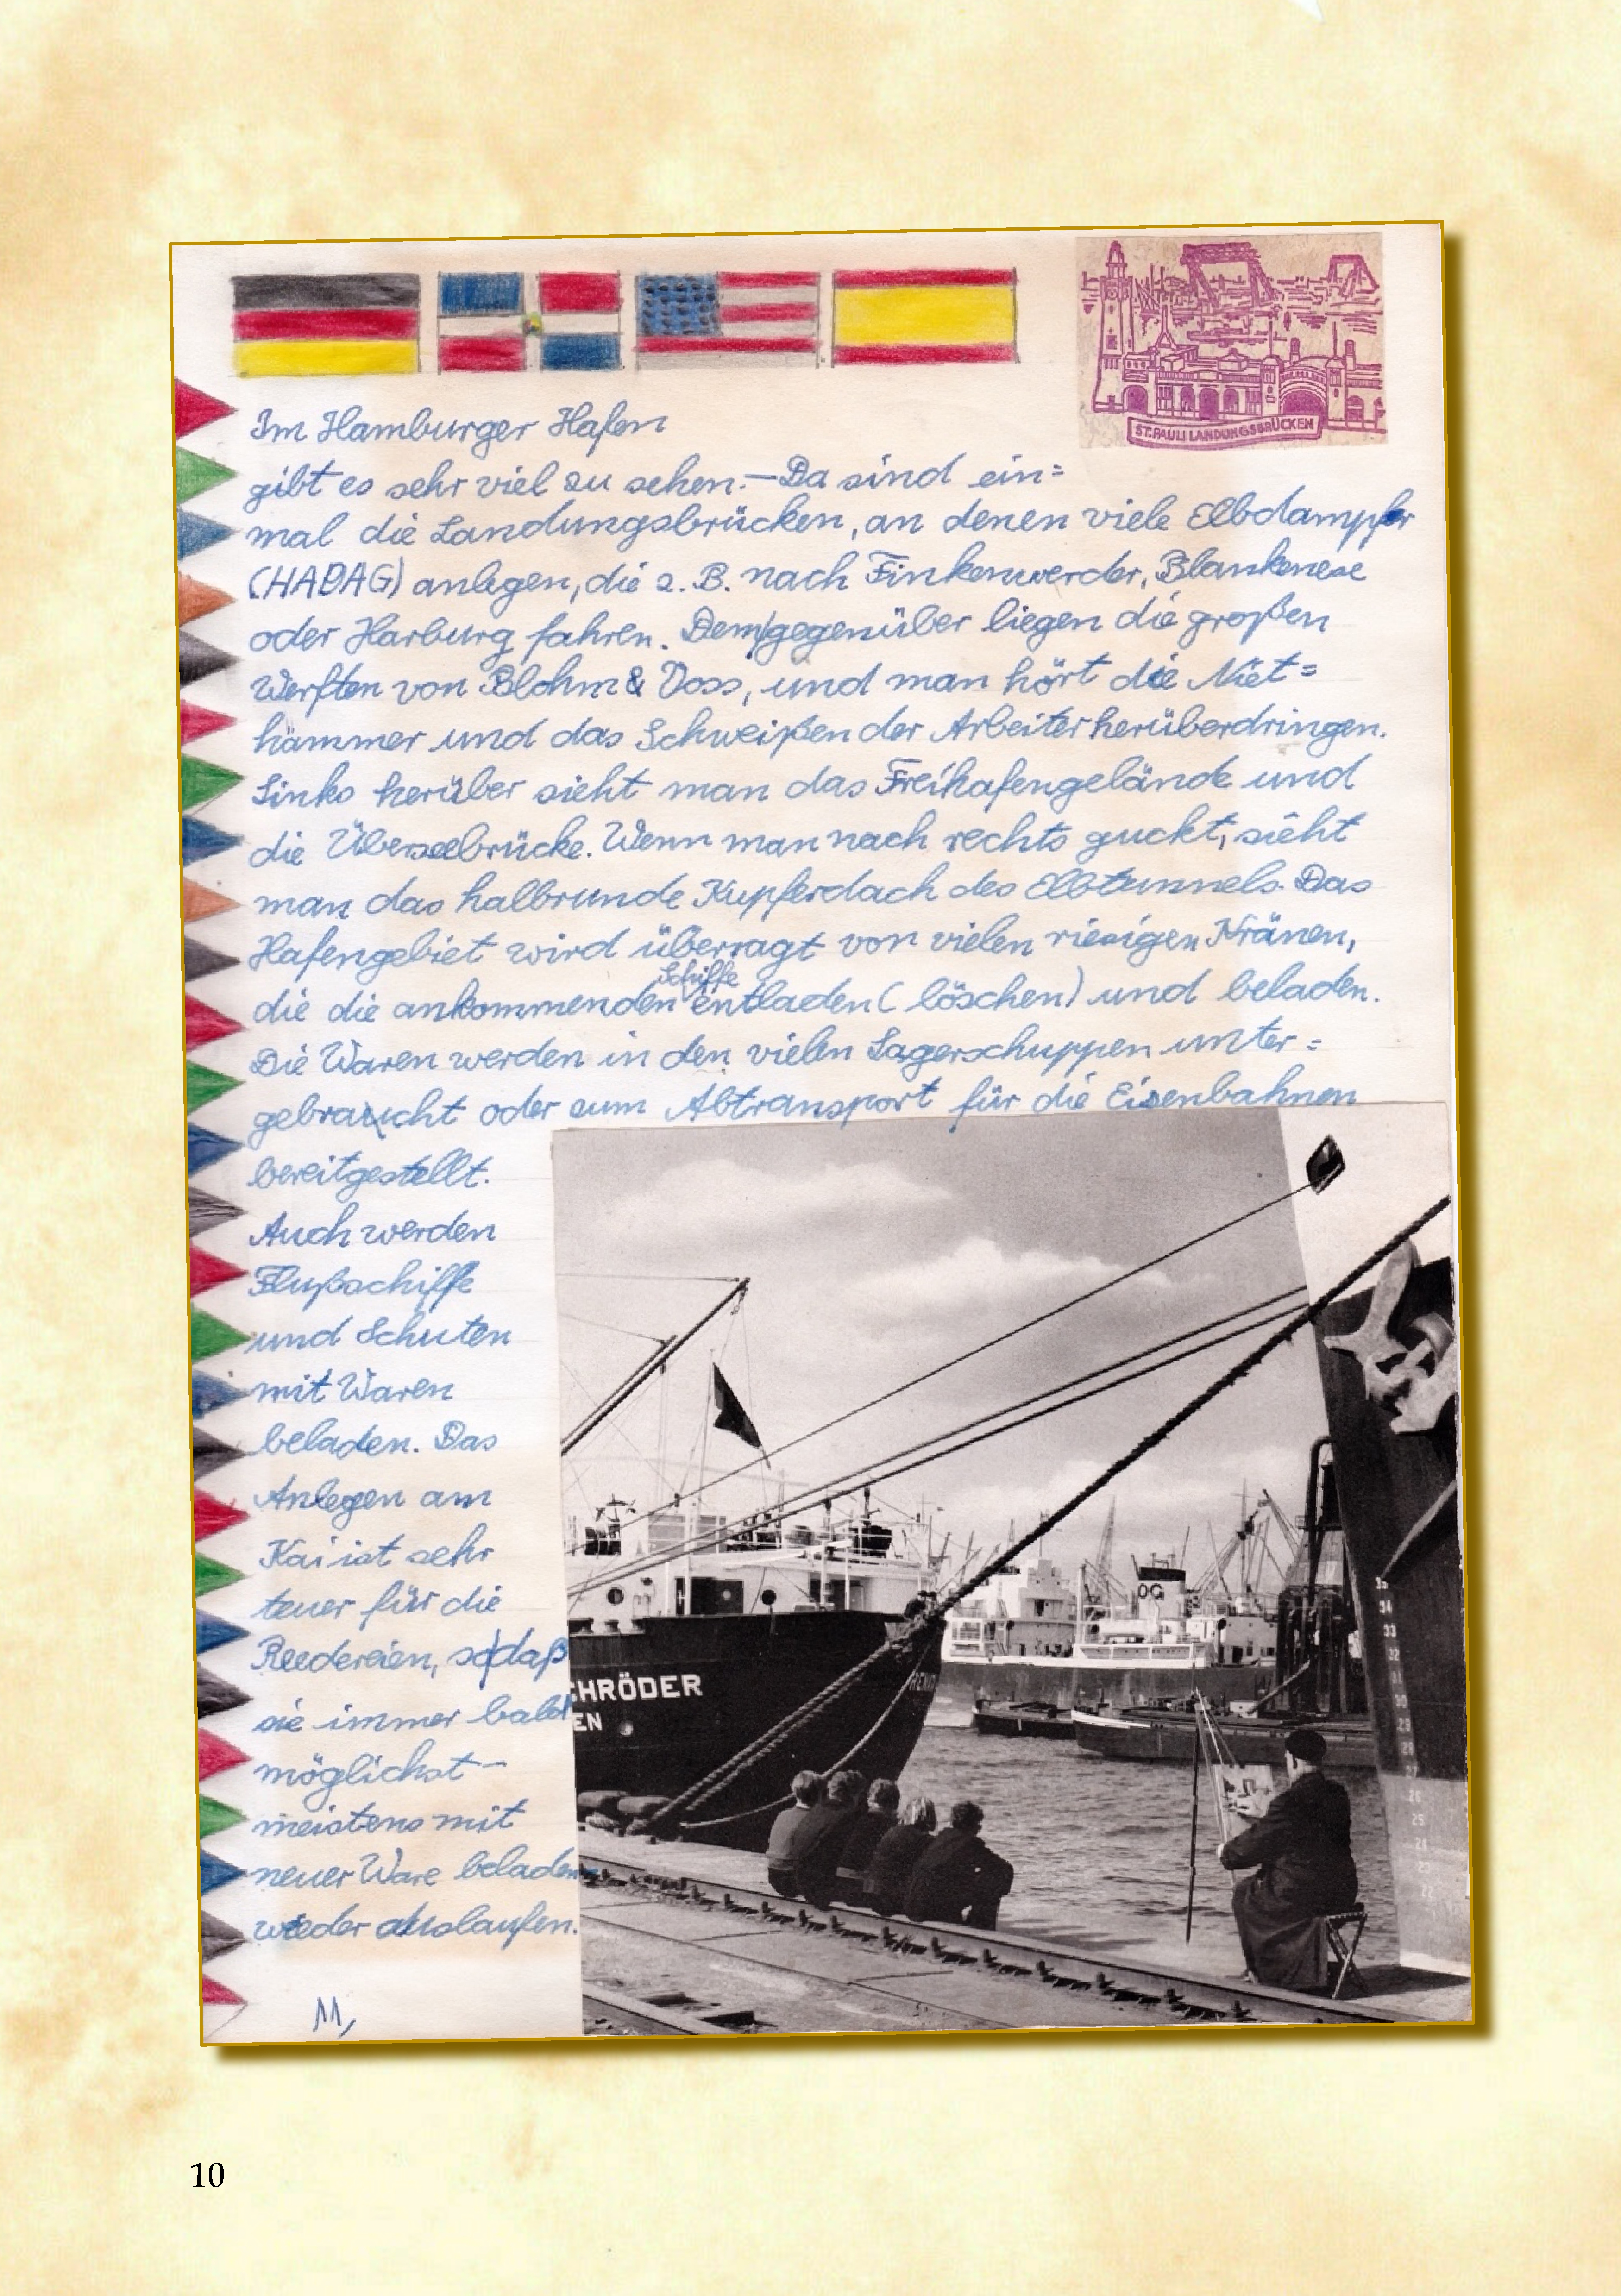 ST. PAULI LANDUNGSBRÜCKEN
Im Hamburger Hafen
gibt es sehr viel zu sehen.— Da sind ein=
mal die Landungsbrücken, an denen viele Elbdampfer
(HADAG) anlegen, die z. B. nach Finkenwerder, Blankenese
oder Harburg fahren. Dem/gegenüber liegen die großen
Werften von Blohm & Voss, und man hört die Niet=
hämmer und das Schweißen der Arbeiter herüberdringen.
Links herüber sieht man das Freihafengelände und
die Überseebrücke. Wenn man nach rechts guckt, sieht
man das halbrunde Kupferdach des Elbtunnels. Das
Hafengebiet wird überragt von vielen riesigen Kränen,
die die ankommenden Schiffe entladen (löschen) und beladen.
Die Waren werden in den vielen Lagerschuppen unter=
gebraucht oder zum Abtransport für die Eisenbahnen
bereitgestellt.
Auch werden
Flußschiffe
und Schuten
mit Waren
beladen. Das
Anlegen am
Kai ist sehr
teuer für die
Reedereien, so/daß
sie immer bald
möglichst -
meistens mit
neuer Ware beladen-
wieder auslaufen.
11,
CHRÖDER
EN
OG
35
34
33
32
31
30
29
28
27
26
25
24
23
10